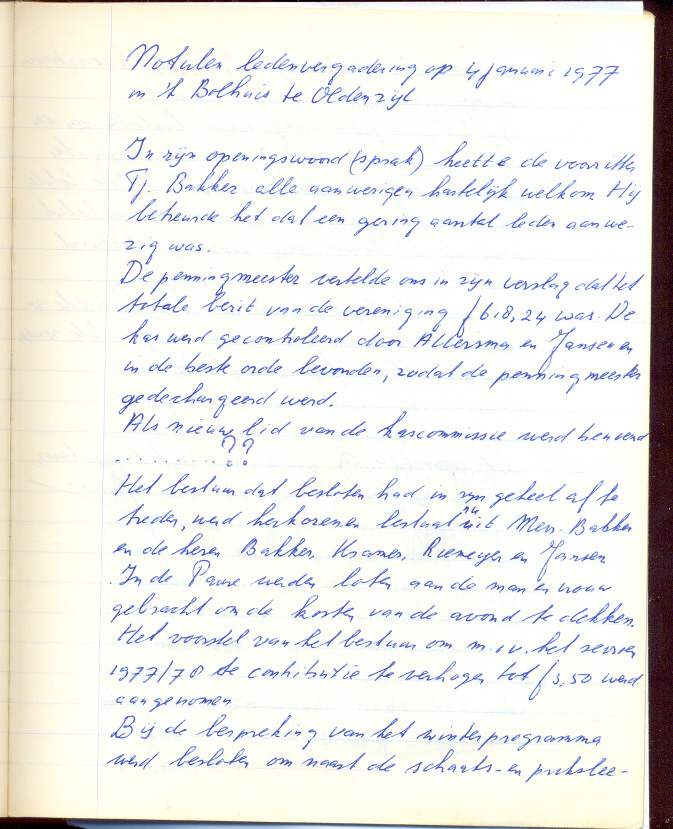 Notulen ledenvergadering op 4 januari 1977
in 't Bolhuis te Oldenzijl
In zijn openingswoord (sprak) heette de voorzitter
Tj. Bakker alle aanwezigen hartelijk welkom Hij
betreurde het dat een gering aantal leden aanwe-
zig was.
De penningmeester vertelde ons in zijn verslag dat het
totale bezit van de vereniging f 618,24 was. De
kas werd gecontroleerd door Allersma en Jansen en
in de beste orde bevonden, zodat de penningmeester
gedechargeerd werd.
Als nieuw lid van de kascommissie werd benoemd
............??
Het bestuur dat besloten had in zijn geheel af te
treden, werd herkozen en bestaat nu uit Mevr. Bakker
en de heren Bakker, Kramer, Riemeijer en Jansen
In de Pauze werden loten aan de man en vrouw
gebracht om de kosten van de avond te dekken.
Het voorstel van het bestuur om m.i.v. het seizoen
1977/78 de contributie te verhogen tot f 3,50 werd
aangenomen
Bij de bespreking van het winterprogramma
werd besloten om naast de schaats- en prikslee-